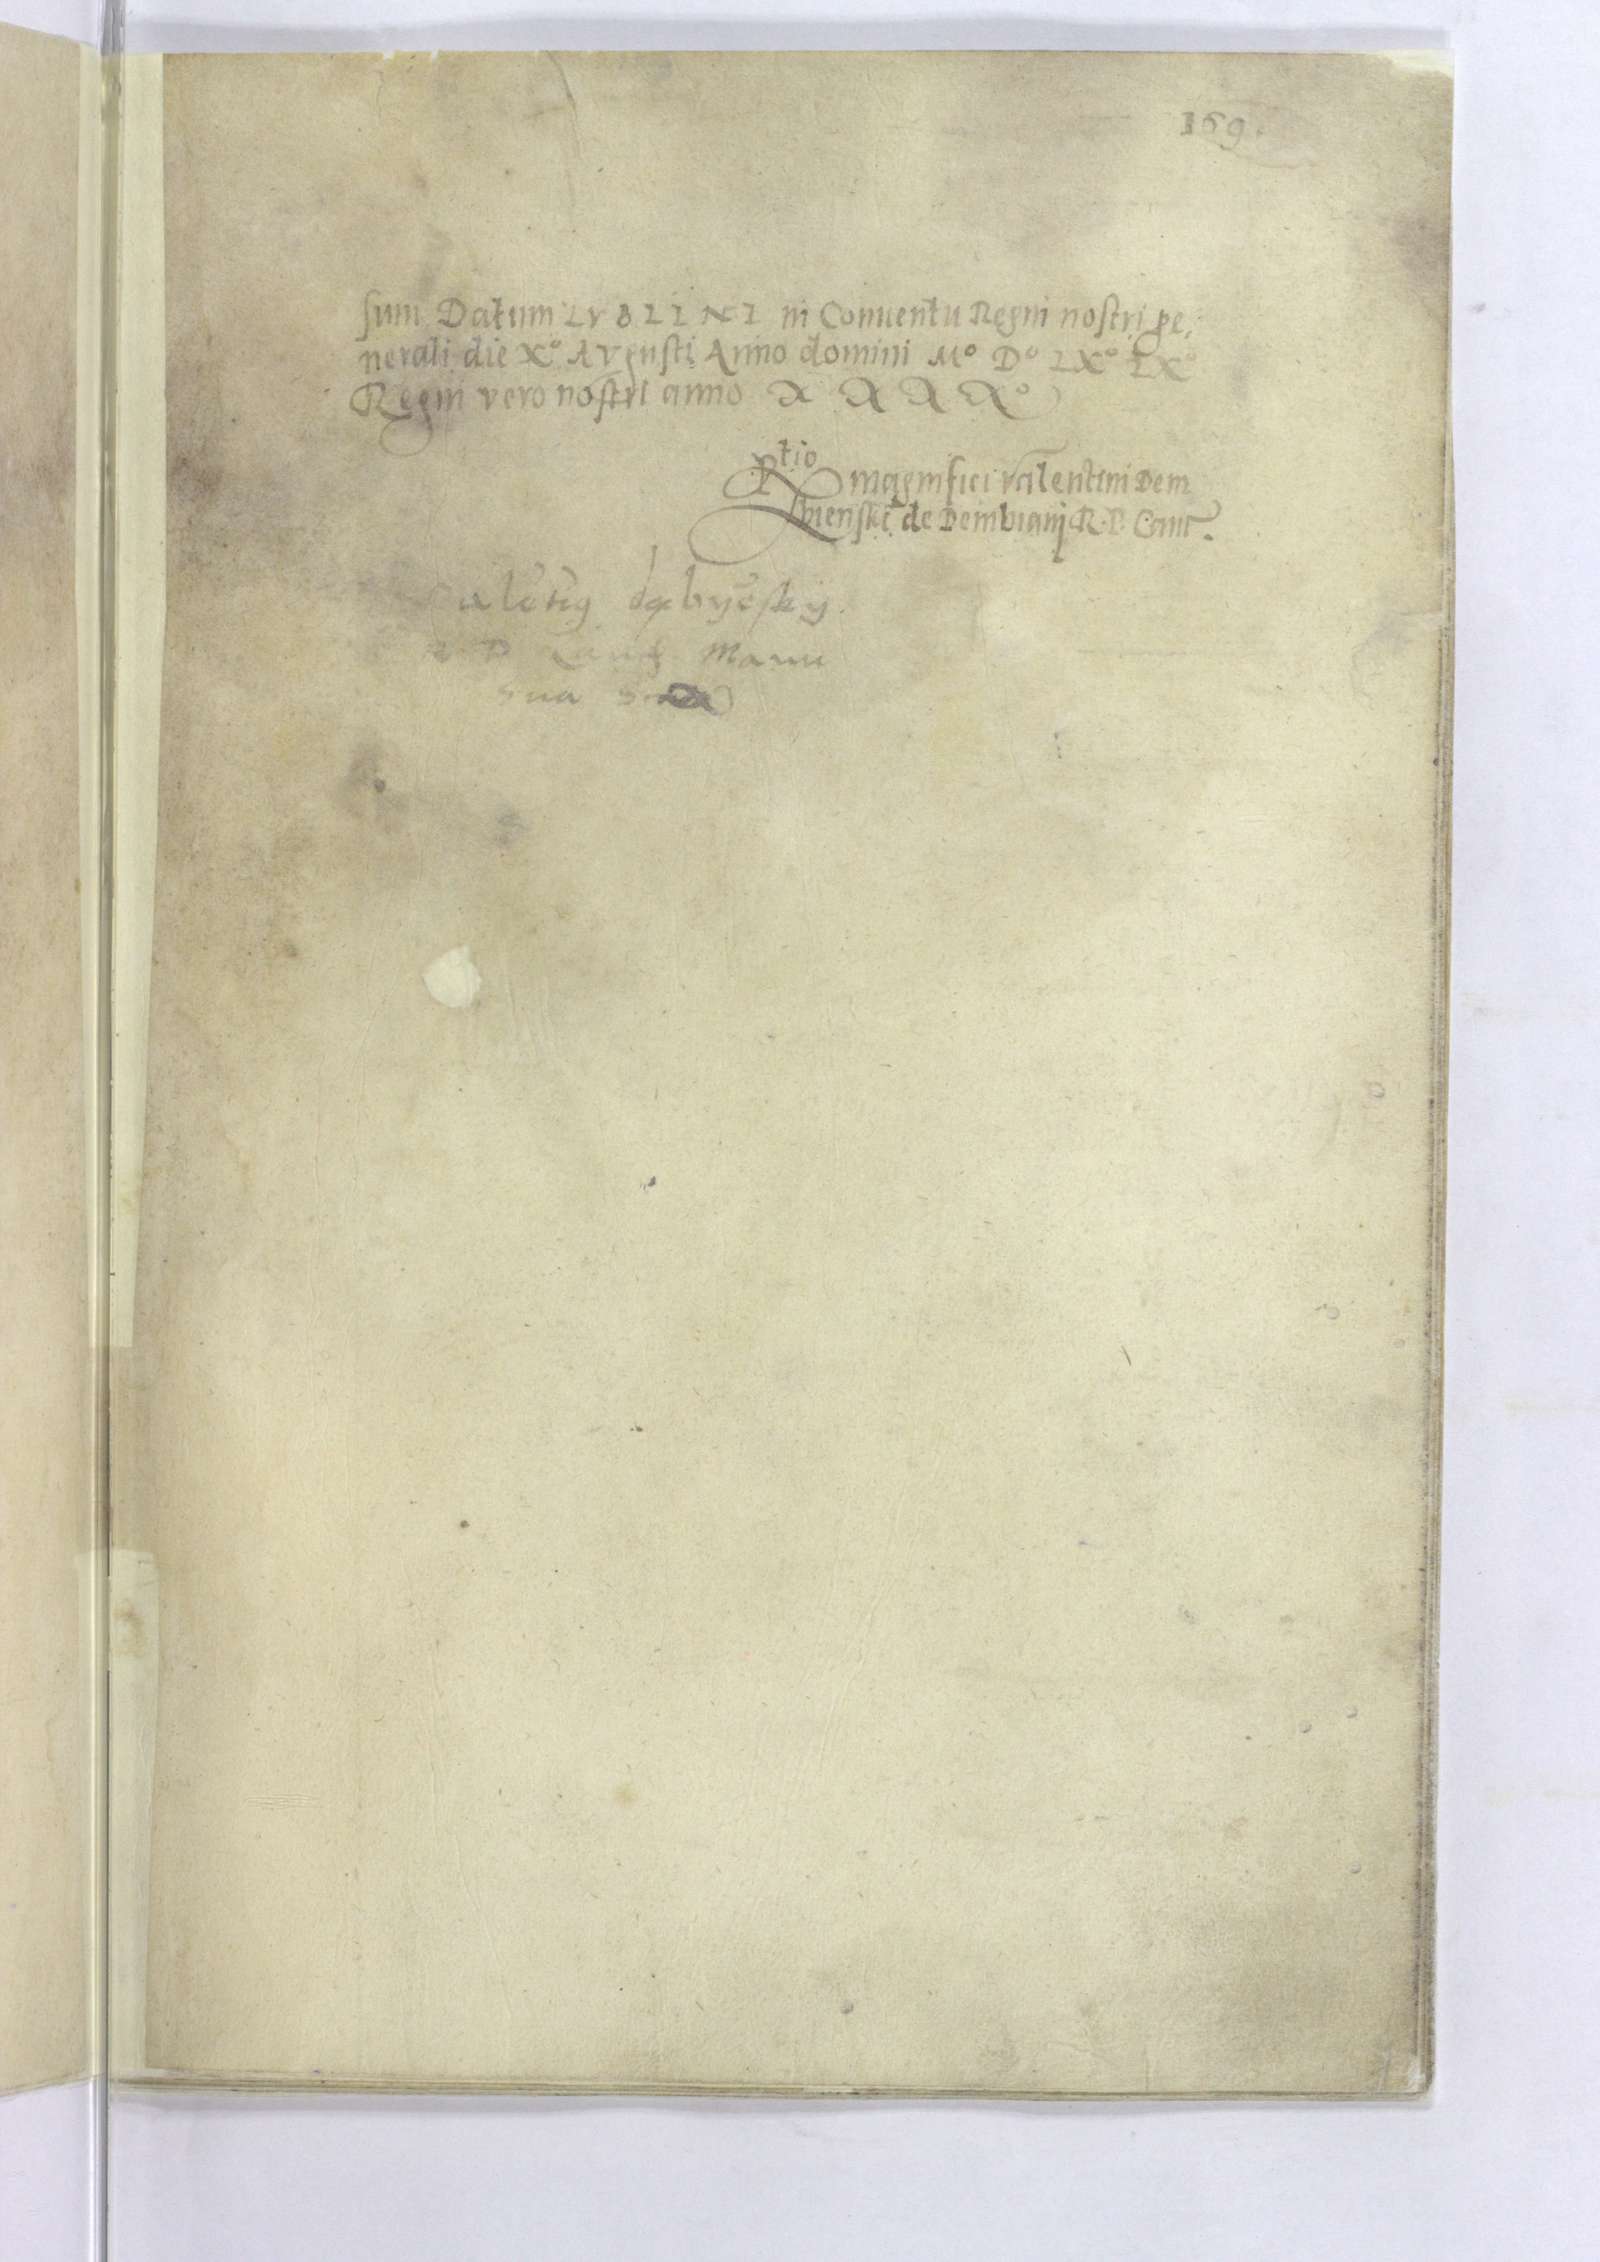 169.
sum Datum LVBLINI in Conuentu Regni nostri ge,
nerali die Xº AVgusti Anno domini Mº Dº LXº IXº
Regni vero nostri anno XXXXº
Rtio magnifici Valentini Dem
bienski de Dembianÿ R. P. Canc.
Valẽtiꝯ dębyẽsky
R P Canc Manu
sua